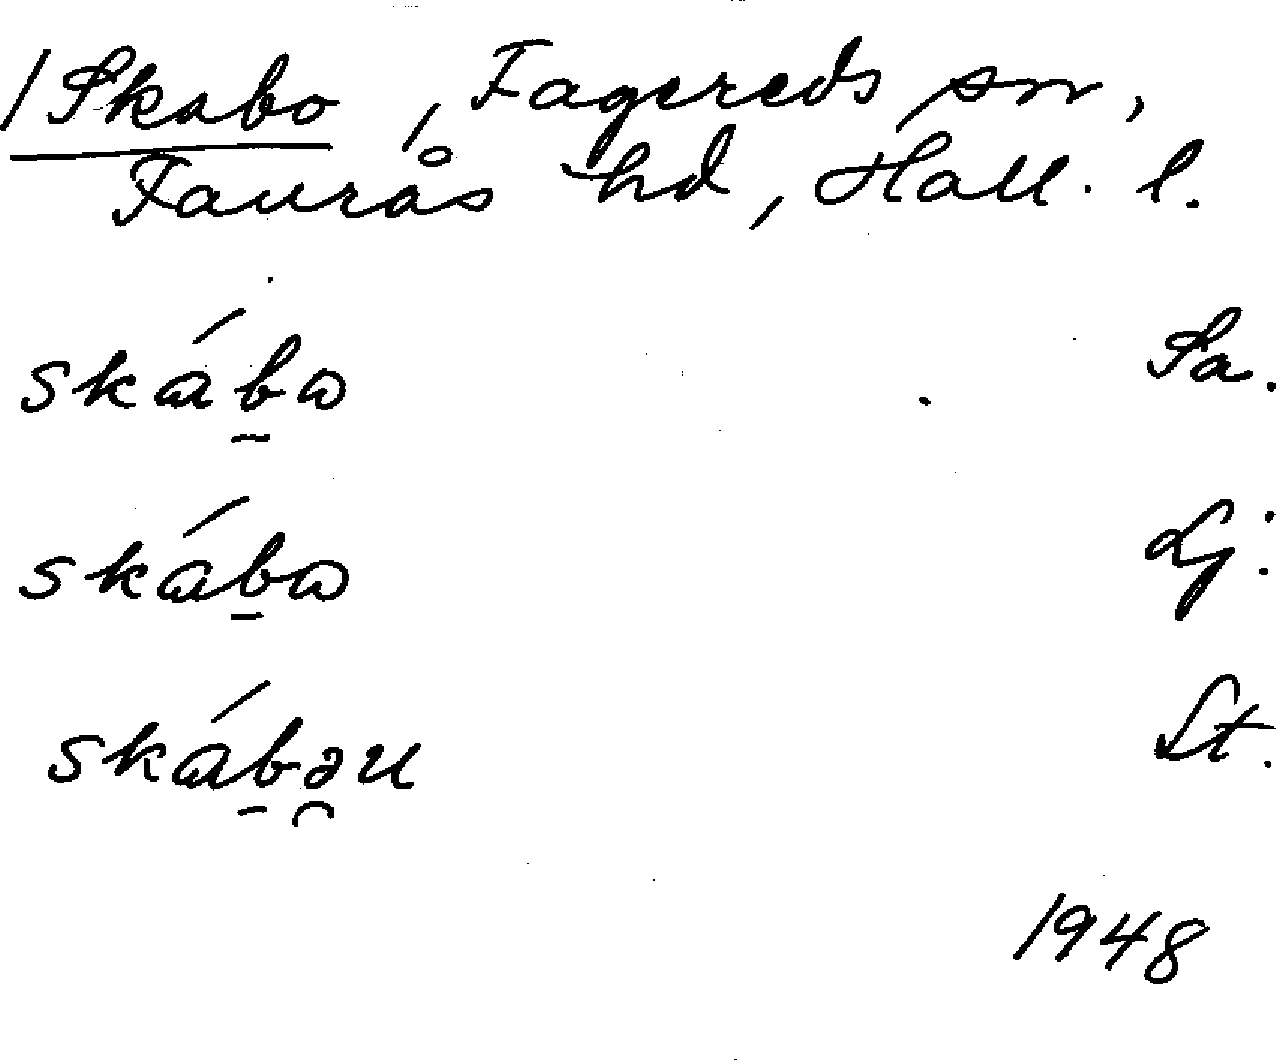 /Skabo, Fagereds sn,
Faurås hd, Hall. l.
skáb̠ɷ Sa.
skáb̠ɷ Lj.
skáb̠ə̯u St.
1948